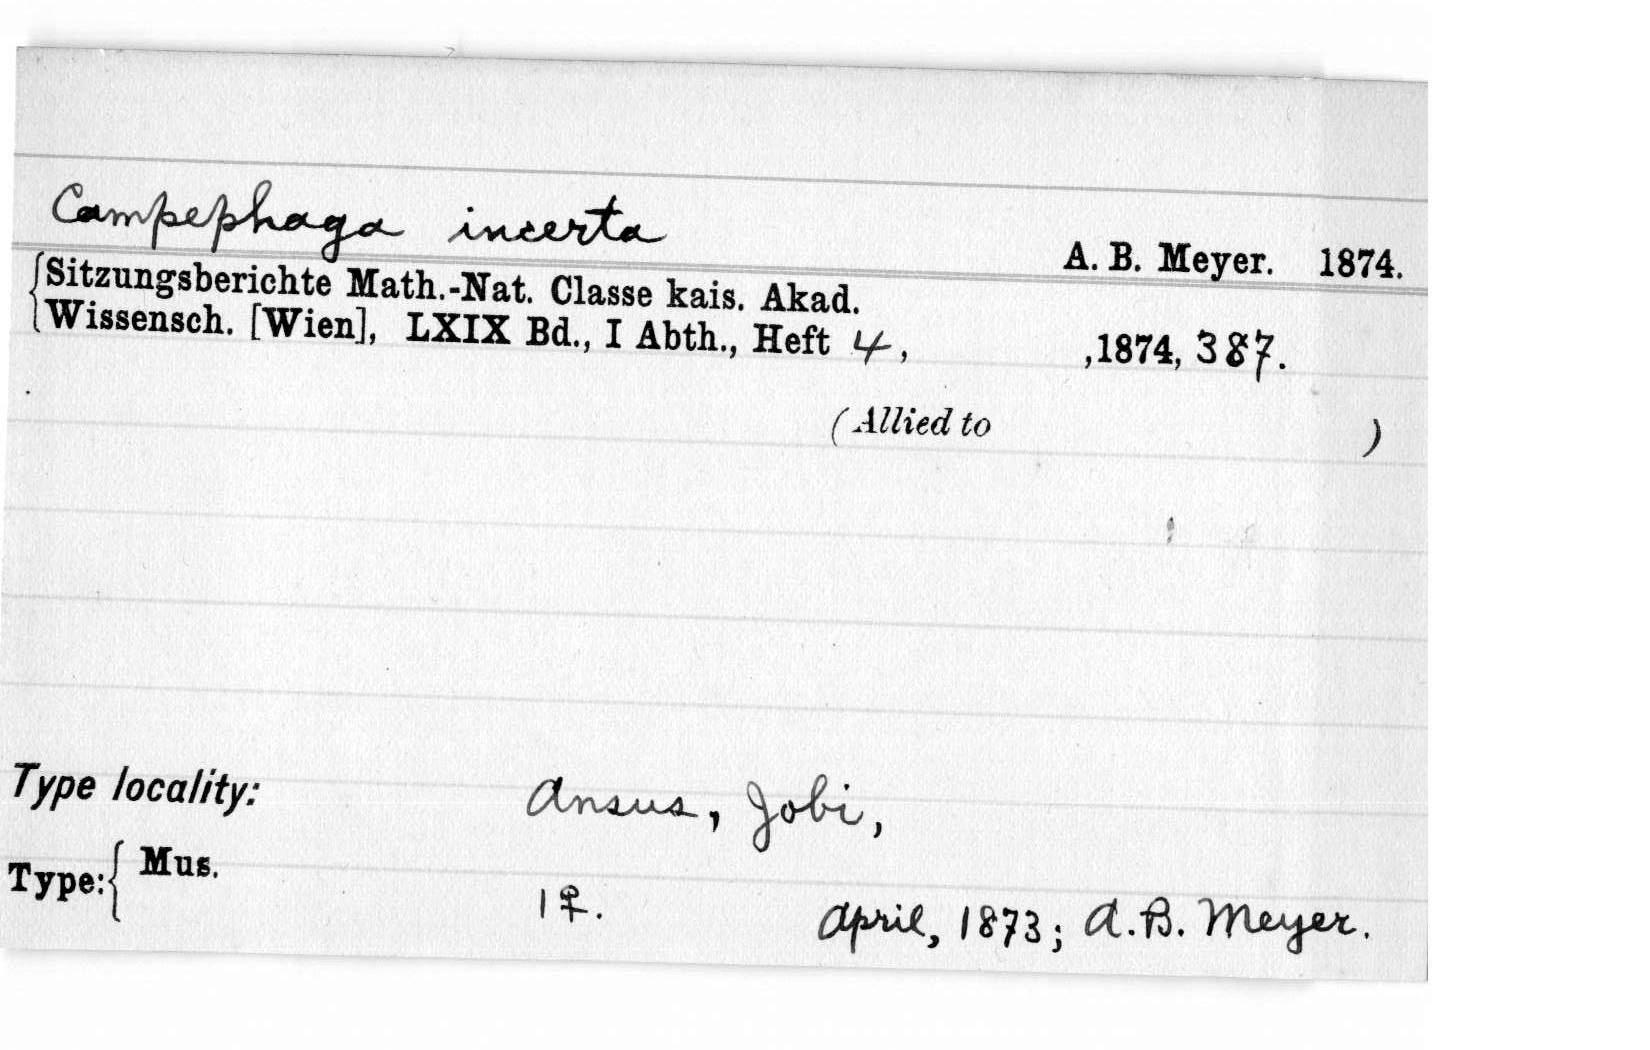 Campephaga incerta A. B. Meyer. 1874.
Sitzungsberichte Math.-Nat. Classe kais. Akad.
Wissensch. [Wien], LXIX Bd., I Abth., Heft 4, ,1874, 387.
(Allied to )
Type locality: Ansus, Jobi,
Type: Mus.
1♀. April, 1873; A.B. Meyer.